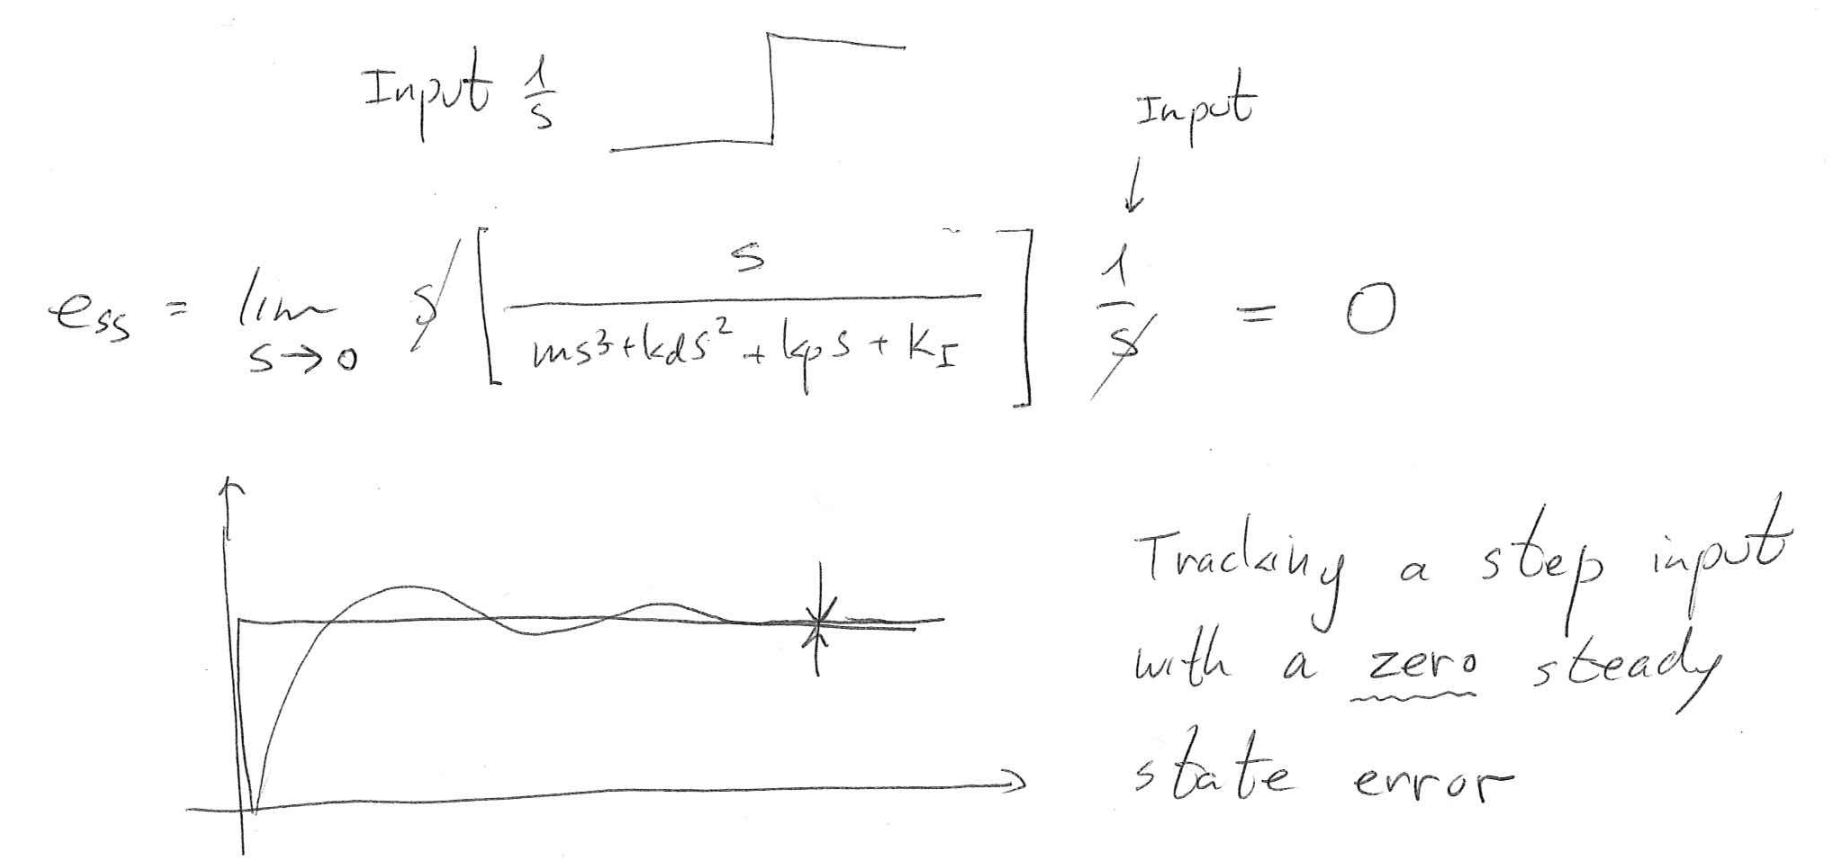 Input 1/s
Input
↓
ess = lim s→0 s [ s / (ms³ + kds² + kps + KI) ] 1/s = 0
Tracking a step input
with a zero steady
state error